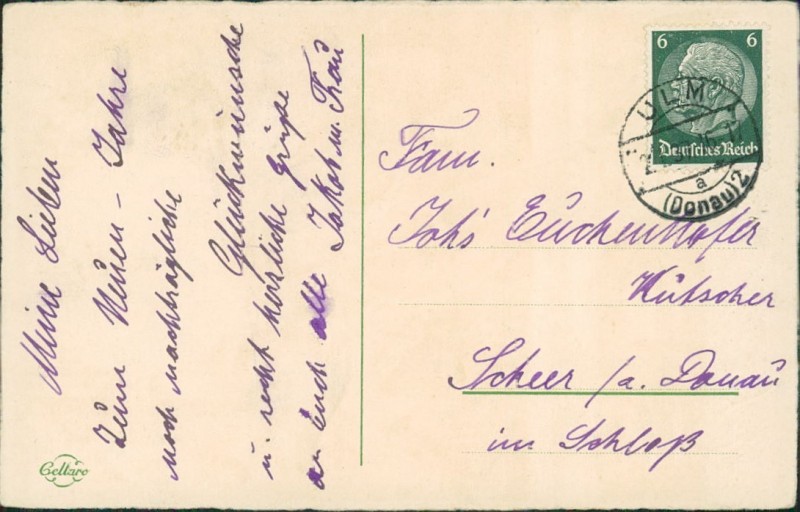 Meine Lieben
Zum Neuen-Jahre
noch nachträgliche
Glückwünsche
u. recht herzliche Grüße
an Euch alle Jakob u. Frau
Celtaro
6 6
Deutsches Reich
ULM
a
(Donau) 2
Fam.
Joh's Euchenhofer
Kutscher
Scheer /a. Donau
im Schloß